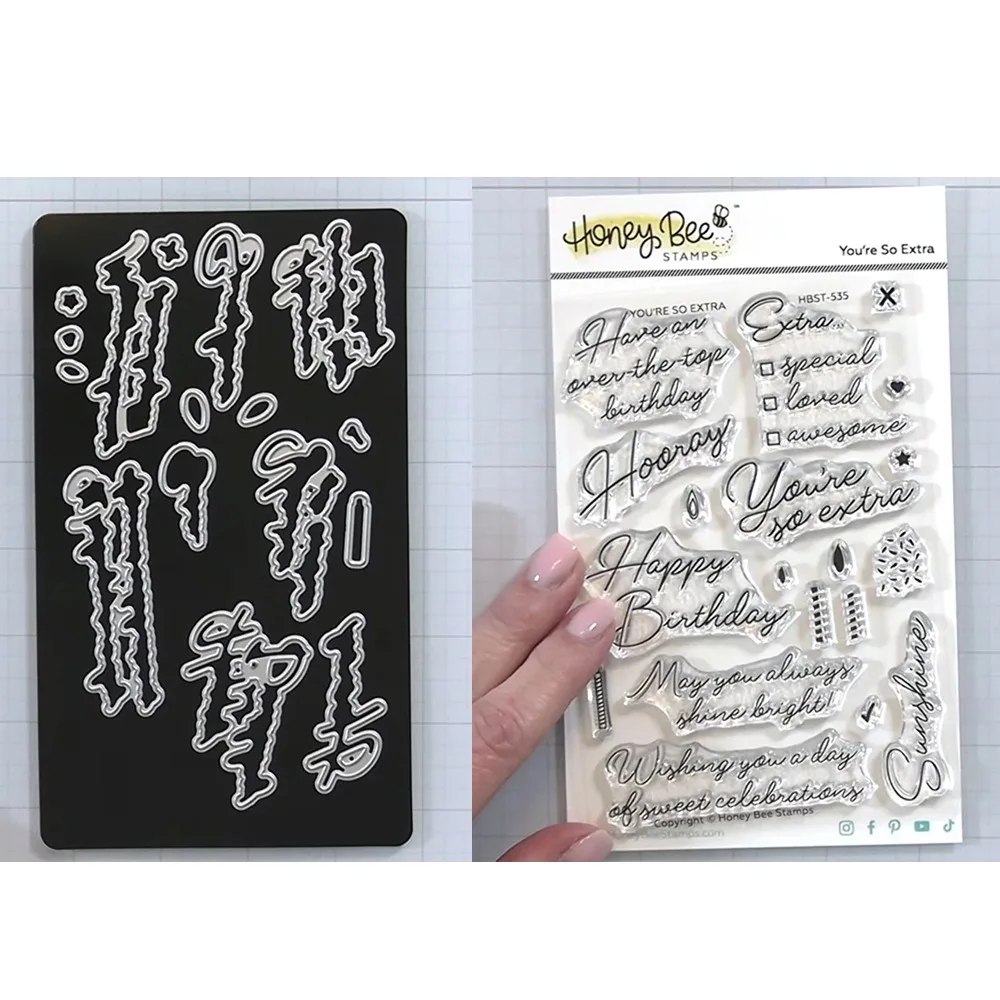 Honey Bee
STAMPS
™
You're So Extra
YOU'RE SO EXTRA
HBST-535
Have an
over-the-top
birthday
Extra...
special
loved
awesome
Hooray
You're
so extra
Happy
Birthday
May you always
shine bright!
Sunshine
Wishing you a day
of sweet celebrations
Copyright © Honey Bee Stamps
HoneyBeeStamps.com